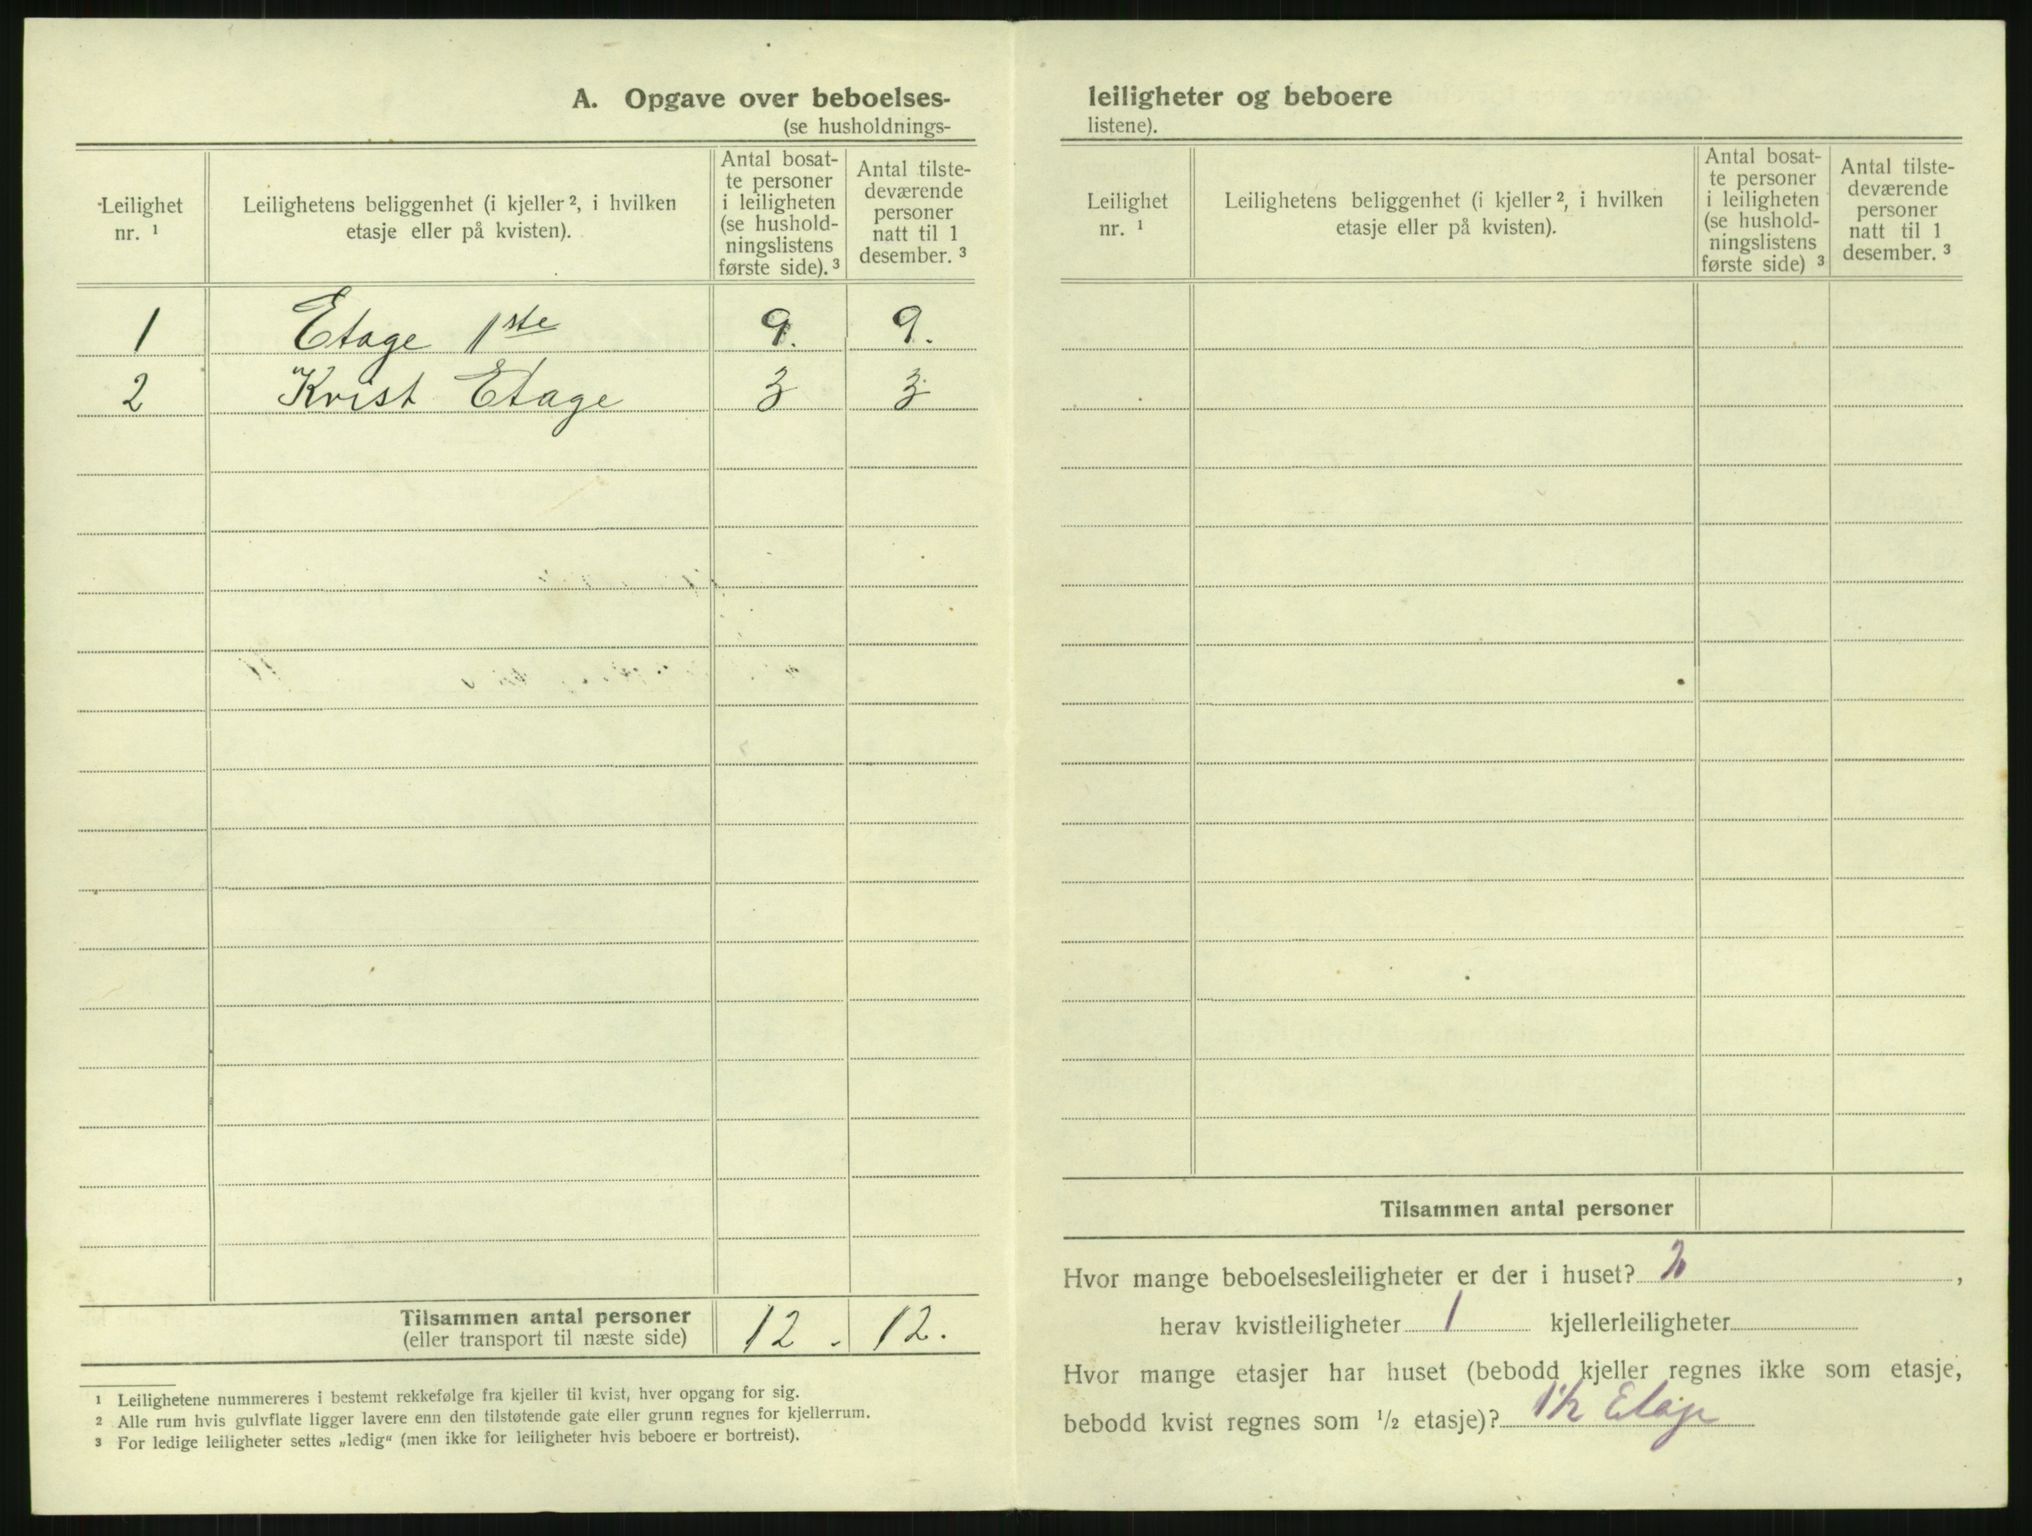 A. Opgave over beboelses-
(se husholdnings-
Leilighet
nr. ¹
Leilighetens beliggenhet (i kjeller ², i hvilken
etasje eller på kvisten).
Antal bosat-
te personer
i leiligheten
(se hushold-
ningslistens
første side). ³
Antal tilste-
deværende
personer
natt til 1
desember. ³
1 Etage 1ste 9. 9.
2 Kvist Etage 3 3
Tilsammen antal personer
(eller transport til næste side)
12. 12.
¹ Leilighetene nummereres i bestemt rekkefølge fra kjeller til kvist, hver opgang for sig.
² Alle rum hvis gulvflate ligger lavere enn den tilstøtende gate eller grunn regnes for kjellerrum.
³ For ledige leiligheter settes „ledig“ (men ikke for leiligheter hvis beboere er bortreist).
leiligheter og beboere
listene).
Leilighet
nr. ¹
Leilighetens beliggenhet (i kjeller ², i hvilken
etasje eller på kvisten).
Antal bosat-
te personer
i leiligheten
(se hushold-
ningslistens
første side) ³
Antal tilste-
deværende
personer
natt til 1
desember. ³
Tilsammen antal personer
Hvor mange beboelsesleiligheter er der i huset? 2,
herav kvistleiligheter 1 kjellerleiligheter
Hvor mange etasjer har huset (bebodd kjeller regnes ikke som etasje,
bebodd kvist regnes som ½ etasje)? 1½ Etasje